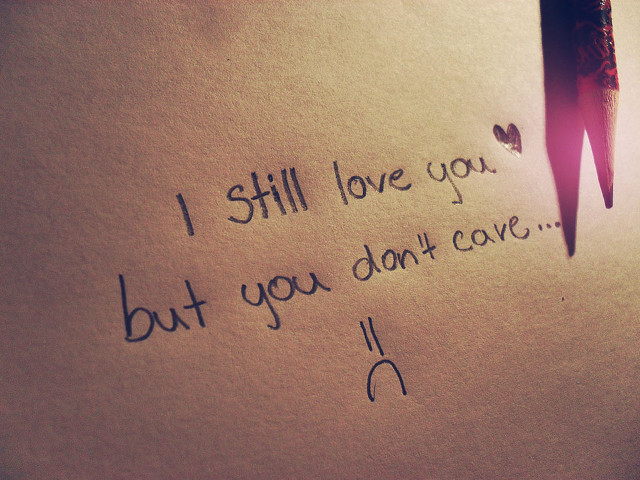 I still love you♥
but you don't care...
=(